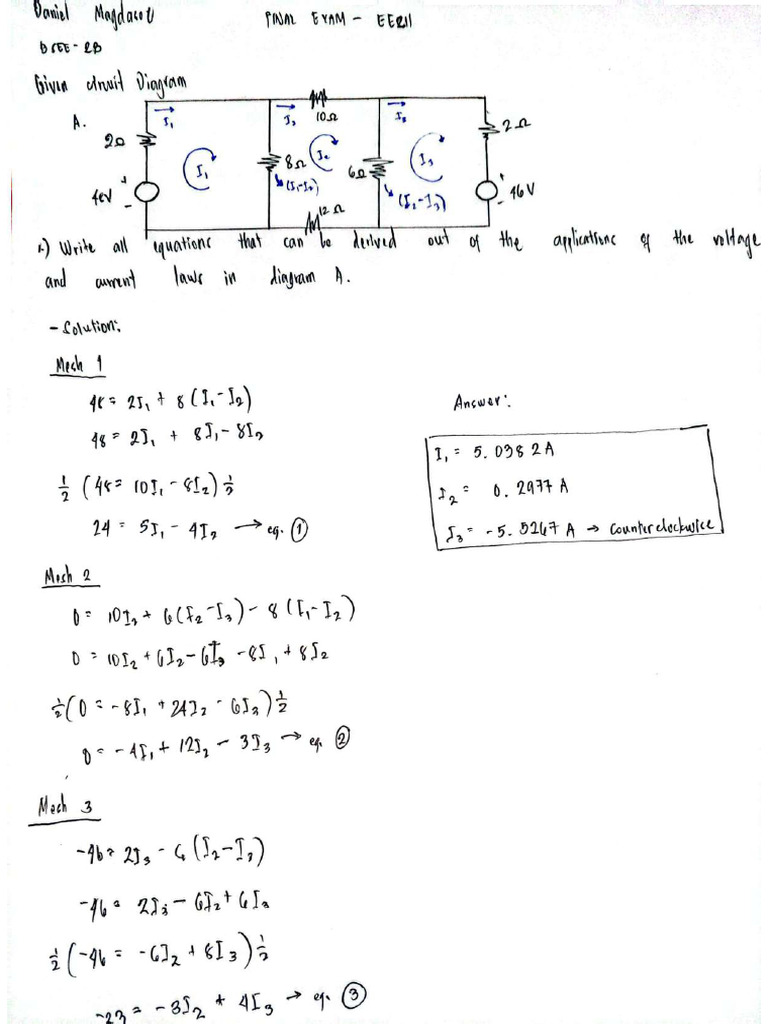 Daniel Magdasoc
FINAL EXAM - EE211
BSEE - 2B
Given circuit Diagram
A.
I₁
I₂
10Ω
I₃
2Ω
2Ω
I₁
8Ω
I₂
6Ω
I₃
(I₁-I₂)
48V
+
-
12Ω
(I₂-I₃)
+
-
46V
1.) Write all equations that can be derived out of the applications of the voltage
and current laws in diagram A.
- Solution:
Mesh 1
48 = 2I₁ + 8(I₁-I₂)
48 = 2I₁ + 8I₁ - 8I₂
½ (48 = 10I₁ - 8I₂) ½
24 = 5I₁ - 4I₂ → eq. ①
Answer:
I₁ = 5.0382A
I₂ = 0.2977 A
I₃ = -5.5267 A → Counterclockwise
Mesh 2
0 = 10I₂ + 6(I₂-I₃) - 8(I₁-I₂)
0 = 10I₂ + 6I₂ - 6I₃ - 8I₁ + 8I₂
½ (0 = -8I₁ + 24I₂ - 6I₃) ½
0 = -4I₁ + 12I₂ - 3I₃ → eq. ②
Mesh 3
-46 = 2I₃ - 6(I₂-I₃)
-46 = 2I₃ - 6I₂ + 6I₃
½ (-46 = -6I₂ + 8I₃) ½
-23 = -3I₂ + 4I₃ → eq. ③